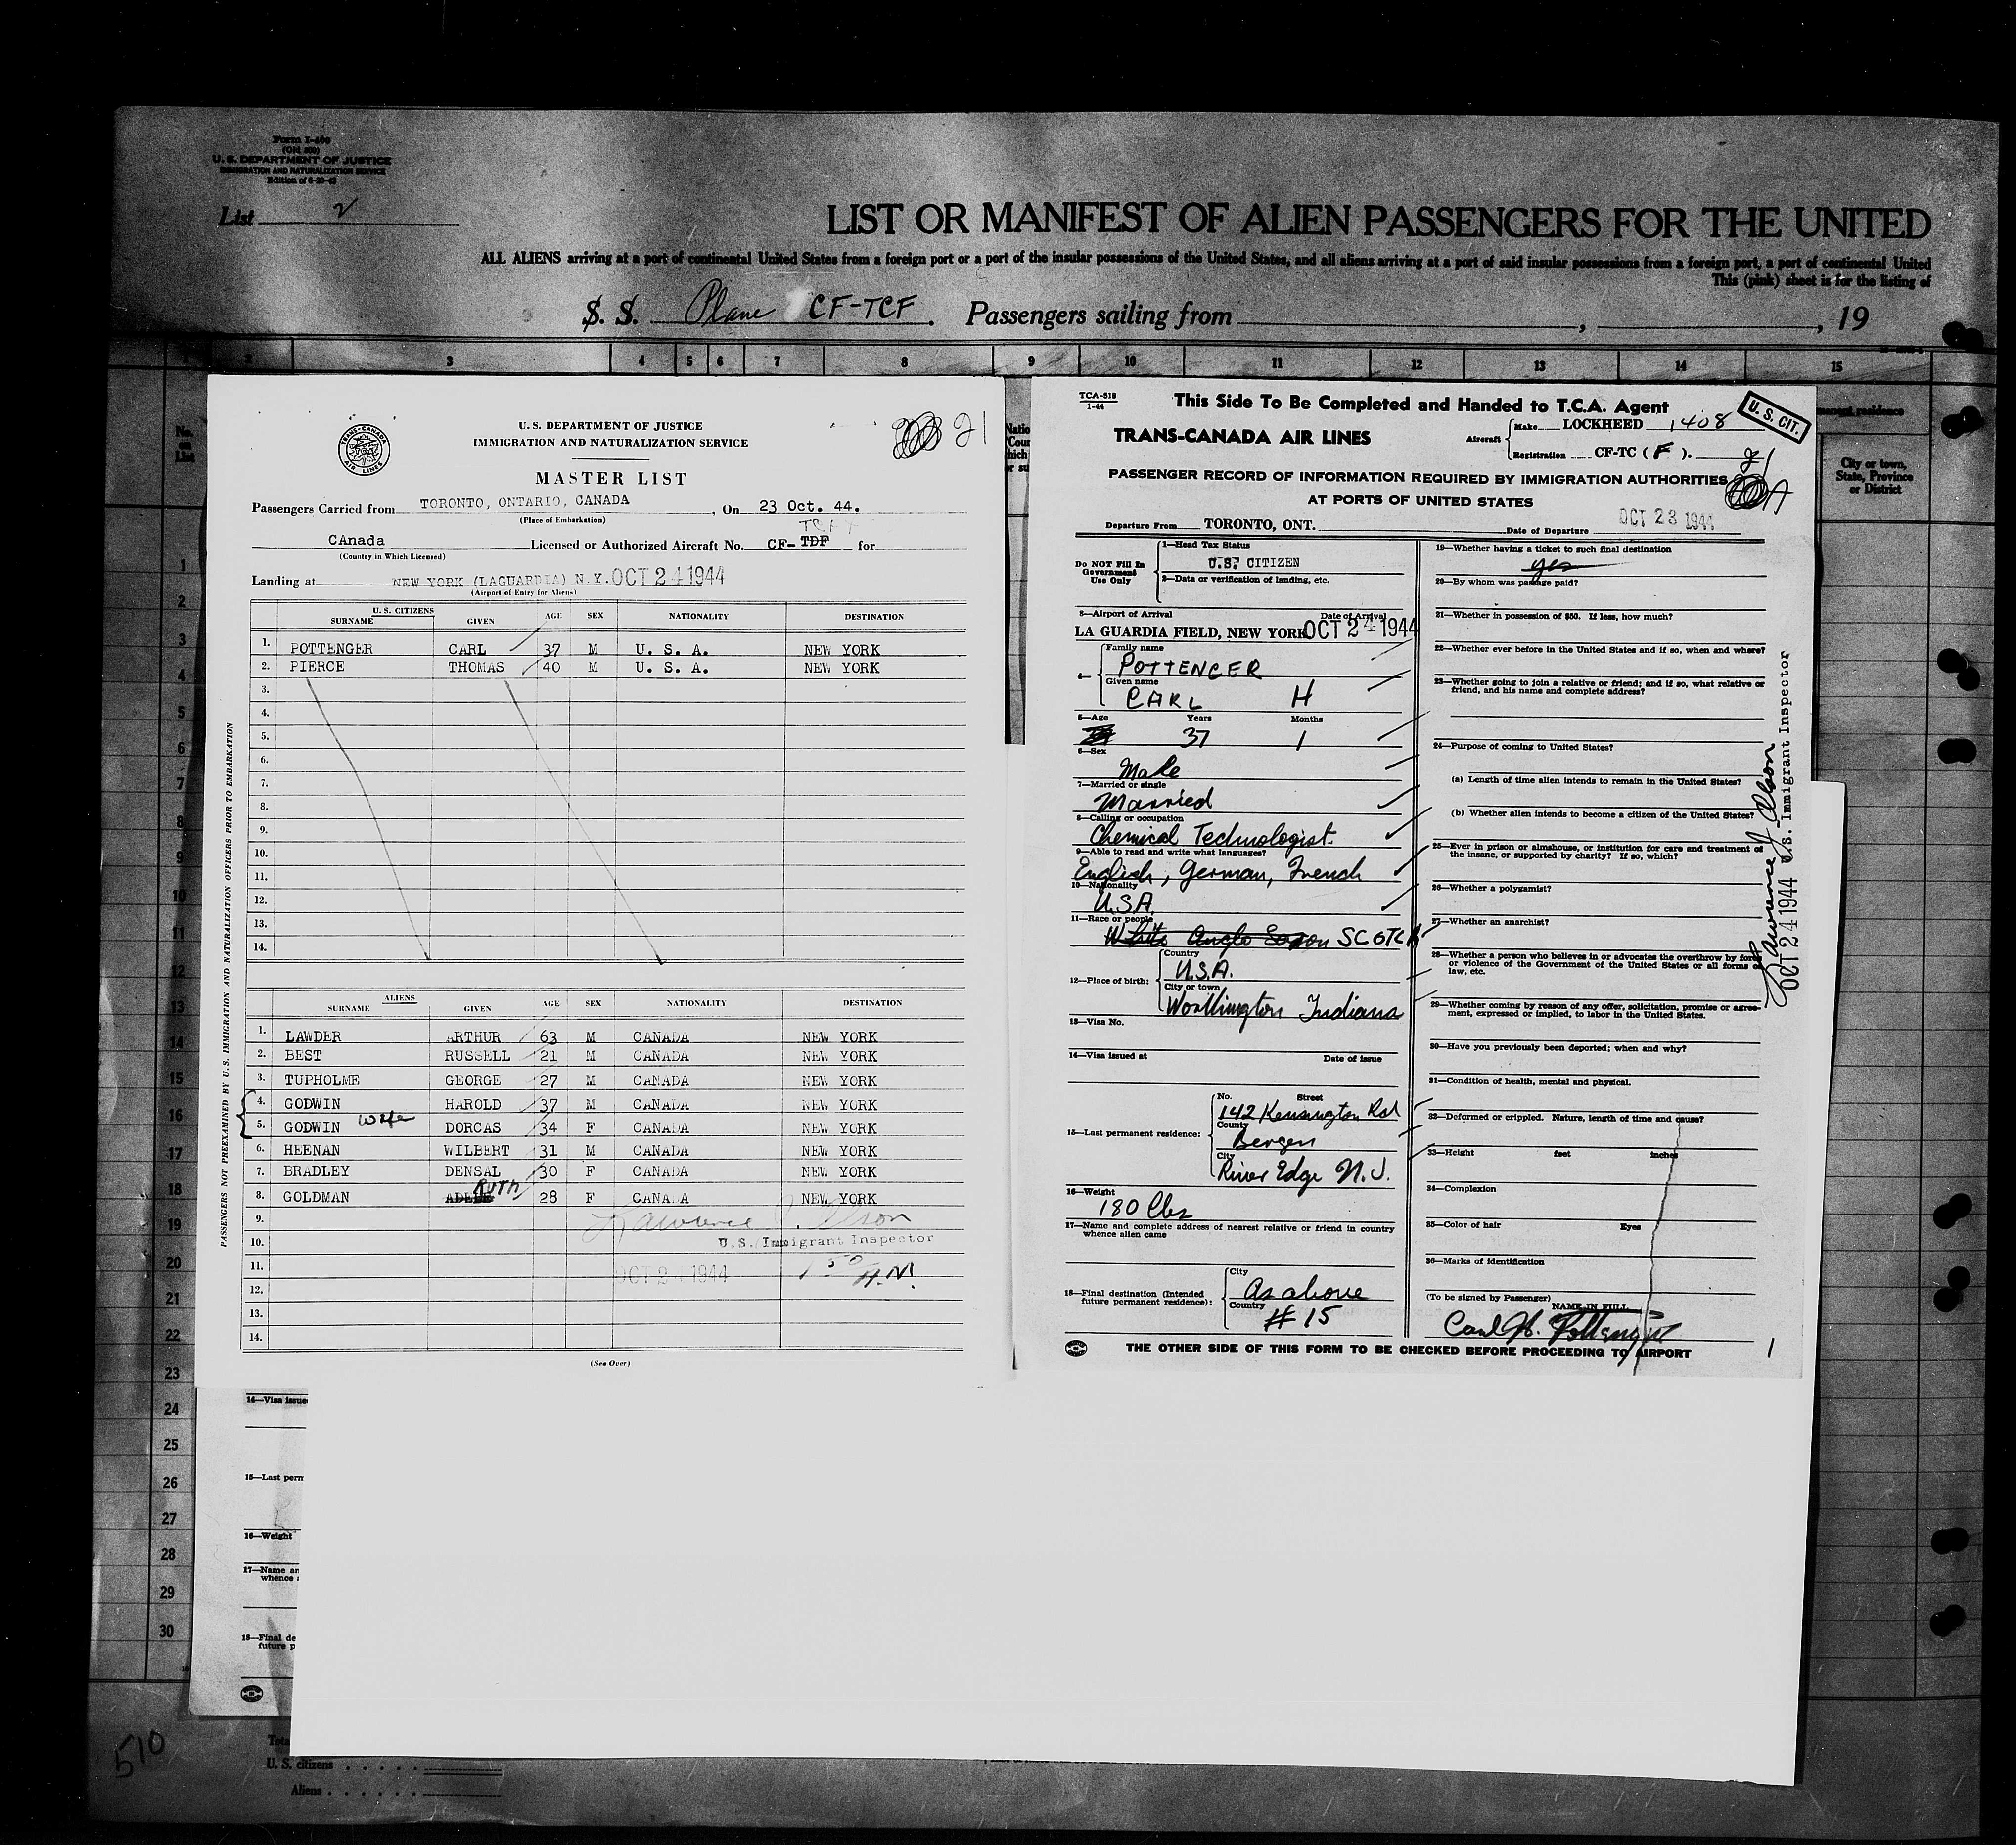 Form I-400
(Old 500)
U. S. DEPARTMENT OF JUSTICE
IMMIGRATION AND NATURALIZATION SERVICE
List 2
LIST OR MANIFEST OF ALIEN PASSENGERS FOR THE UNITED
ALL ALIENS arriving at a port of continental United States from a foreign port or a port of the insular possessions of the United States, and all aliens arriving at a port of said insular possessions from a foreign port, a port of continental United
This (pink) sheet is for the listing of
S. S. Plane CF-TCF. Passengers sailing from , , 19
2 3 4 5 6 7 8 9 10 11 12 13 14 15
No. on List
City or town, State, Province or District
1
2
3
4
5
6
7
8
9
10
11
12
13
14
15
16
17
18
19
20
21
22
23
24
25
26
27
28
29
30
TRANS-CANADA AIR LINES
TCA
21
U. S. DEPARTMENT OF JUSTICE
IMMIGRATION AND NATURALIZATION SERVICE
MASTER LIST
Passengers Carried from TORONTO, ONTARIO, CANADA, On 23 Oct. 44.
(Place of Embarkation)
CAnada Licensed or Authorized Aircraft No. CF-TDF for
(Country in Which Licensed)
Landing at NEW YORK (LAGUARDIA) N.Y. OCT 24 1944
(Airport of Entry for Aliens)
U. S. CITIZENS
SURNAME GIVEN AGE SEX NATIONALITY DESTINATION
1. POTTENGER CARL 37 M U. S. A. NEW YORK
2. PIERCE THOMAS 40 M U. S. A. NEW YORK
3.
4.
5.
6.
7.
8.
9.
10.
11.
12.
13.
14.
ALIENS
SURNAME GIVEN AGE SEX NATIONALITY DESTINATION
1. LAWDER ARTHUR 63 M CANADA NEW YORK
2. BEST RUSSELL 21 M CANADA NEW YORK
3. TUPHOLME GEORGE 27 M CANADA NEW YORK
4. GODWIN HAROLD 37 M CANADA NEW YORK
5. GODWIN wife DORCAS 34 F CANADA NEW YORK
6. HEENAN WILBERT 31 M CANADA NEW YORK
7. BRADLEY DENSAL 30 F CANADA NEW YORK
8. GOLDMAN RUTH 28 F CANADA NEW YORK
9. Lawrence J. Olson
10. U.S. Immigrant Inspector
11. OCT 24 1944 1 50 A.M.
12.
13.
14.
(See Over)
PASSENGERS NOT PREEXAMINED BY U. S. IMMIGRATION AND NATURALIZATION OFFICERS PRIOR TO EMBARKATION
TCA-518
1-44
This Side To Be Completed and Handed to T.C.A. Agent
U. S. CIT.
TRANS-CANADA AIR LINES
Aircraft
Make LOCKHEED 1408
Registration CF-TC ( F ).
21
PASSENGER RECORD OF INFORMATION REQUIRED BY IMMIGRATION AUTHORITIES
AT PORTS OF UNITED STATES
Departure From TORONTO, ONT. Date of Departure OCT 23 1944
Do NOT Fill In Government Use Only
1—Head Tax Status
U.S. CITIZEN
2—Data or verification of landing, etc.
3—Airport of Arrival Date of Arrival
LA GUARDIA FIELD, NEW YORK OCT 24 1944
4—
Family name
POTTENGER
Given name
CARL H
5—Age Years Months
37 1
6—Sex
Male
7—Married or single
Married
8—Calling or occupation
Chemical Technologist.
9—Able to read and write what languages?
English, German, French
10—Nationality
U.S.A.
11—Race or people
White Anglo Saxon SCOTCH
12—Place of birth:
Country
U.S.A.
City or town
Worthington Indiana
13—Visa No.
14—Visa issued at Date of issue
15—Last permanent residence:
No. Street
142 Kensington Rd
County
Bergen
City
River Edge N.J.
16—Weight
180 lbs
17—Name and complete address of nearest relative or friend in country
whence alien came
18—Final destination (Intended
future permanent residence):
City
As above
Country
# 15
19—Whether having a ticket to such final destination
yes
20—By whom was passage paid?
21—Whether in possession of $50. If less, how much?
22—Whether ever before in the United States and if so, when and where?
23—Whether going to join a relative or friend; and if so, what relative or
friend, and his name and complete address?
24—Purpose of coming to United States?
(a) Length of time alien intends to remain in the United States?
(b) Whether alien intends to become a citizen of the United States?
25—Ever in prison or almshouse, or institution for care and treatment of
the insane, or supported by charity? If so, which?
26—Whether a polygamist?
27—Whether an anarchist?
28—Whether a person who believes in or advocates the overthrow by force
or violence of the Government of the United States or all forms of
law, etc.
29—Whether coming by reason of any offer, solicitation, promise or agree-
ment, expressed or implied, to labor in the United States.
30—Have you previously been deported; when and why?
31—Condition of health, mental and physical.
32—Deformed or crippled. Nature, length of time and cause?
33—Height feet inches
34—Complexion
35—Color of hair Eyes
36—Marks of identification
(To be signed by Passenger)
NAME IN FULL
Carl H. Pottenger
THE OTHER SIDE OF THIS FORM TO BE CHECKED BEFORE PROCEEDING TO AIRPORT
1
Lawrence J Olson
OCT 24 1944 U.S. Immigrant Inspector
14—Visa issue
15—Last perm
16—Weight
17—Name an
whence a
18—Final de
future p
510
Tota
U. S. citizens
Aliens